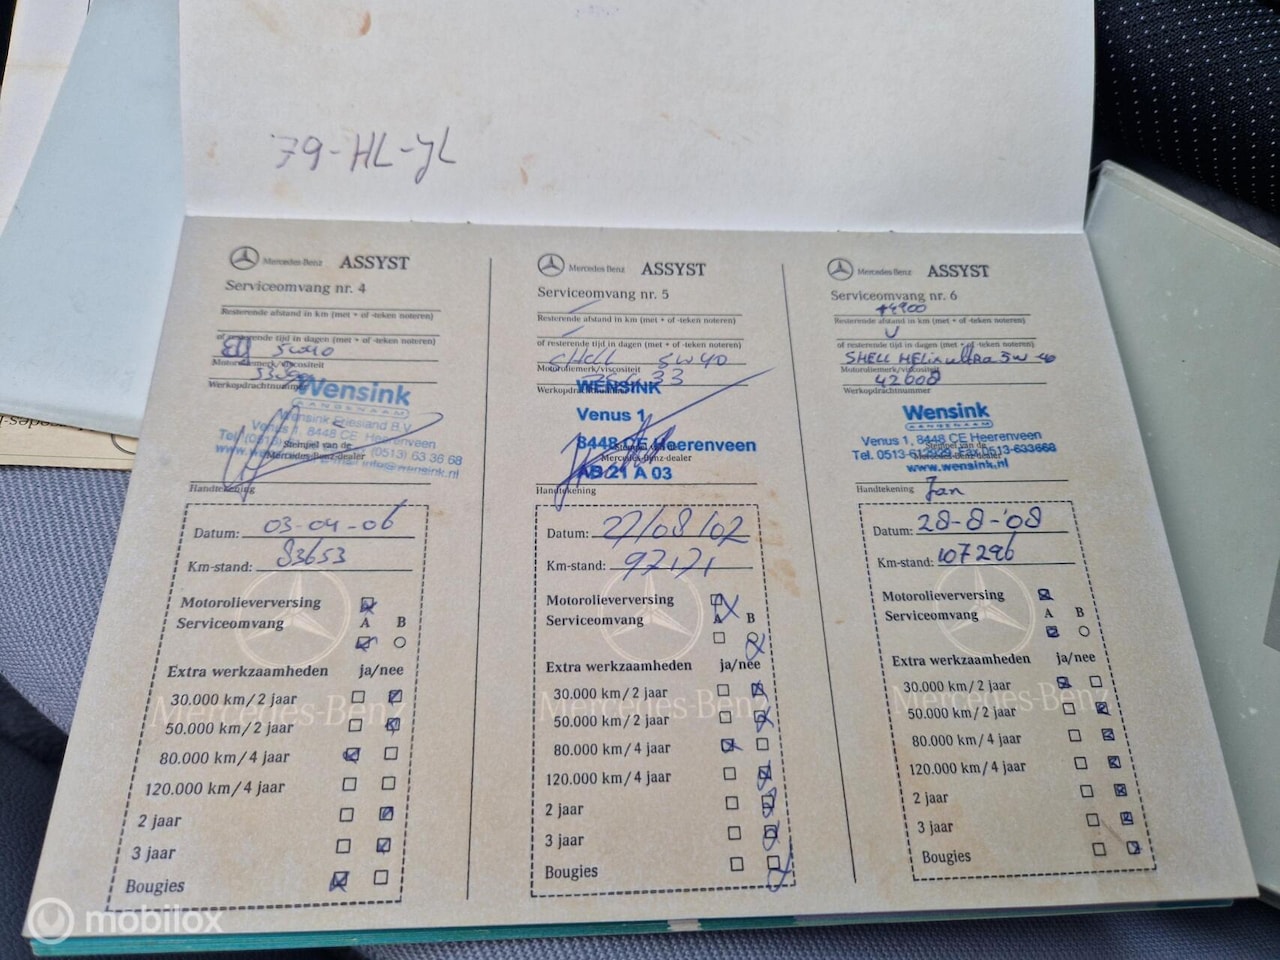 79-HL-JL
Mercedes-Benz ASSYST
Serviceomvang nr. 4
Resterende afstand in km (met + of -teken noteren)
of resterende tijd in dagen (met + of -teken noteren)
5W40
Motoroliemerk/viscositeit
Werkopdrachtnummer
Wensink
AANGENAAM
Wensink Friesland B.V.
Venus 1, 8448 CE Heerenveen
Stempel van de
Mercedes-Benz-dealer
Handtekening
Datum: 03-04-06
Km-stand: 83653
Motorolieverversing
Serviceomvang A B
Extra werkzaamheden ja/nee
30.000 km/2 jaar
50.000 km/2 jaar
80.000 km/4 jaar
120.000 km/4 jaar
2 jaar
3 jaar
Bougies
Mercedes-Benz ASSYST
Serviceomvang nr. 5
Resterende afstand in km (met + of -teken noteren)
of resterende tijd in dagen (met + of -teken noteren)
SHELL 5W40
Motoroliemerk/viscositeit
Werkopdrachtnummer
WENSINK
Venus 1
8448 CE Heerenveen
Stempel van de
Mercedes-Benz-dealer
AB 21 A 03
Handtekening
Datum: 27/08/02
Km-stand: 97171
Motorolieverversing
Serviceomvang A B
Extra werkzaamheden ja/nee
30.000 km/2 jaar
50.000 km/2 jaar
80.000 km/4 jaar
120.000 km/4 jaar
2 jaar
3 jaar
Bougies
Mercedes-Benz ASSYST
Serviceomvang nr. 6
+4900
Resterende afstand in km (met + of -teken noteren)
of resterende tijd in dagen (met + of -teken noteren)
SHELL HELIX ultra 5W 40
Motoroliemerk/viscositeit
42608
Werkopdrachtnummer
Wensink
Venus 1, 8448 CE Heerenveen
Stempel van de
Mercedes-Benz-dealer
www.wensink.nl
Handtekening Jan
Datum: 28-8-'08
Km-stand: 107296
Motorolieverversing
Serviceomvang A B
Extra werkzaamheden ja/nee
30.000 km/2 jaar
50.000 km/2 jaar
80.000 km/4 jaar
120.000 km/4 jaar
2 jaar
3 jaar
Bougies
mobilox